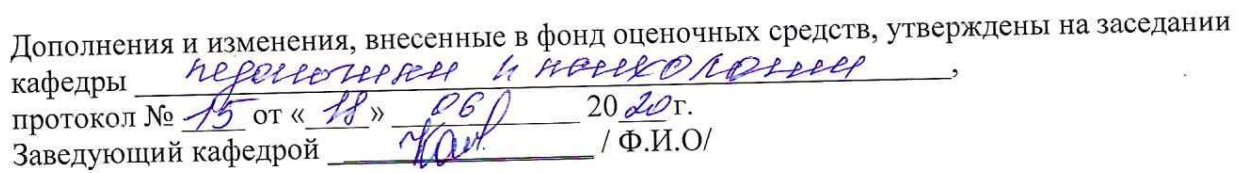 Дополнения и изменения, внесенные в фонд оценочных средств, утверждены на заседании
кафедры педагогики и психологии,
протокол № 15 от «18» 06 2020г.
Заведующий кафедрой / Ф.И.О/